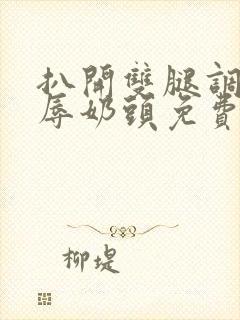 扒開雙腿調
辱奶頭免費
柳堤